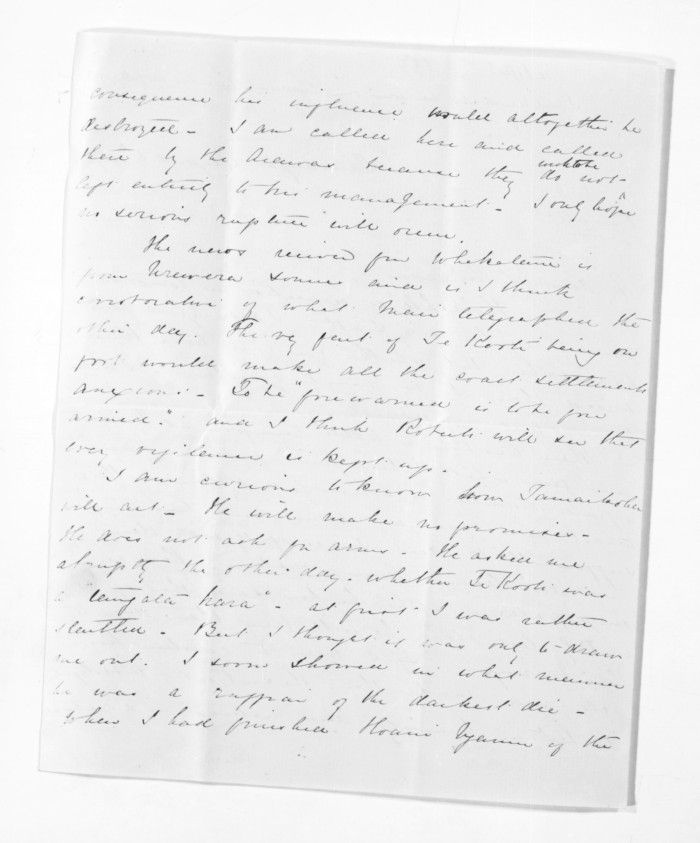 consequence his influence would altogether be
destroyed - I am called here and called
there by the Arawas because they do not
wish to be
left entirely to his management - I only hope
no serious rupture will occur.
The news received from Whakatane is
from Urewera sources and is I think
corroborative of what Mair telegraphed the
other day. The very fact of Te Kooti being on
foot would make all the coast settlements
anxious - To be "forewarned is to be fore
armed." and I think Roberts will see that
every vigilance is kept up -
I am curious to know how Tamaikoha
will act - He will make no promises -
He does not ask for arms - He asked me
abruptly the other day - whether Te Kooti was
a "tangata kara" - at first I was rather
startled - But I thought it was only to draw
me out. I soon showed in what manner
he was a ruffian of the darkest die -
When I had finished Hoani of the